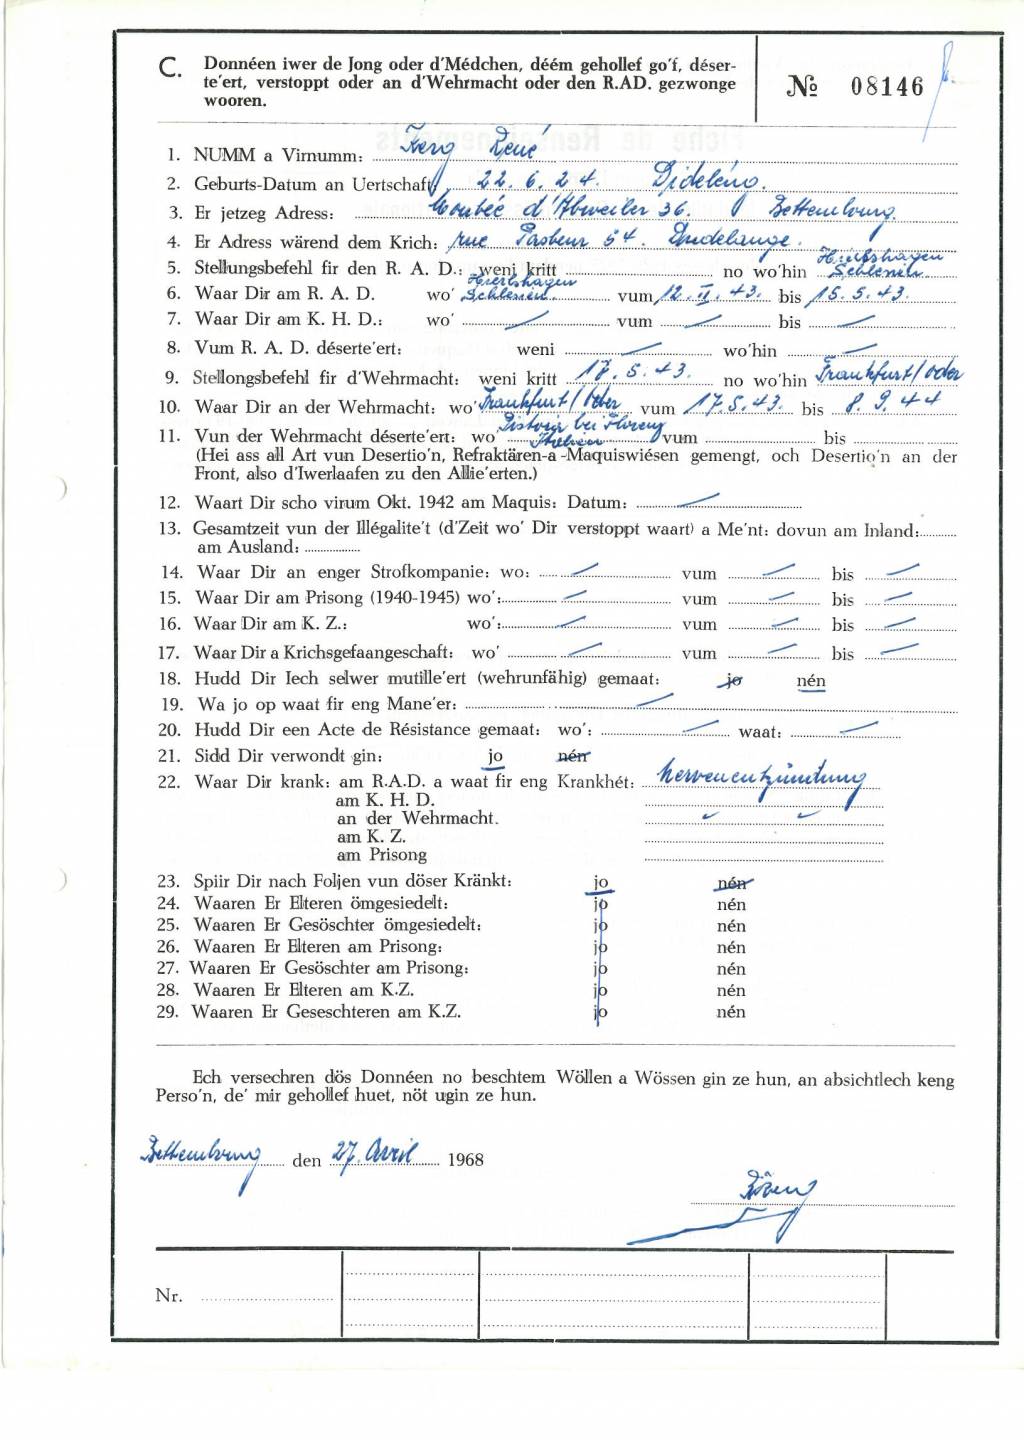 C. Donnéen iwer de Jong oder d'Médchen, déém gehollef go'f, déser-
te'ert, verstoppt oder an d'Wehrmacht oder den R.AD. gezwonge
wooren.
№ 08146
1. NUMM a Virnumm: Kerg René
2. Geburts-Datum an Uertschaft 22. 6. 24. Dideléng.
3. Er jetzeg Adress: Montée d'Abweiler 36. Bettembourg
4. Er Adress wärend dem Krich: rue Pasteur 54. Dudelange.
5. Stellungsbefehl fir den R. A. D.: weni kritt no wo'hin Schlesien.
6. Waar Dir am R. A. D. wo' Schlesien vum 12. II. 43. bis 15. 5. 43.
7. Waar Dir am K. H. D.: wo' — vum — bis —
8. Vum R. A. D. déserte'ert: weni — wo'hin —
9. Stellongsbefehl fir d'Wehrmacht: weni kritt 17. 5. 43. no wo'hin Frankfurt/Oder
10. Waar Dir an der Wehrmacht: wo' Frankfurt/Oder vum 17. 5. 43. bis 8. 9. 44
11. Vun der Wehrmacht déserte'ert: wo' Pistoia bei Florenz Italien vum bis
(Hei ass all Art vun Desertio'n, Refraktären-a -Maquiswiésen gemengt, och Desertio'n an der
Front, also d'Iwerlaafen zu den Allie'erten.)
12. Waart Dir scho virum Okt. 1942 am Maquis: Datum: —
13. Gesamtzeit vun der Illégalite't (d'Zeit wo' Dir verstoppt waart) a Me'nt: dovun am Inland:
am Ausland:
14. Waar Dir an enger Strofkompanie: wo: — vum — bis —
15. Waar Dir am Prisong (1940-1945) wo': — vum — bis —
16. Waar Dir am K. Z.: wo': — vum — bis —
17. Waar Dir a Krichsgefaangeschaft: wo' — vum — bis —
18. Hudd Dir Iech selwer mutille'ert (wehrunfähig) gemaat: jo nén
19. Wa jo op waat fir eng Mane'er: —
20. Hudd Dir een Acte de Résistance gemaat: wo': — waat: —
21. Sidd Dir verwondt gin: jo nén
22. Waar Dir krank: am R.A.D. a waat fir eng Krankhét: Nervenentzündung
am K. H. D.
an der Wehrmacht.
am K. Z.
am Prisong
23. Spiir Dir nach Foljen vun döser Kränkt: jo nén
24. Waaren Er Elteren ömgesiedelt: jo nén
25. Waaren Er Gesöschter ömgesiedelt: jo nén
26. Waaren Er Elteren am Prisong: jo nén
27. Waaren Er Gesöschter am Prisong: jo nén
28. Waaren Er Elteren am K.Z. jo nén
29. Waaren Er Geseschteren am K.Z. jo nén
Ech versechren dös Donnéen no beschtem Wöllen a Wössen gin ze hun, an absichtlech keng
Perso'n, de' mir gehollef huet, nöt ugin ze hun.
Bettembourg den 27. Avril 1968
Nr.